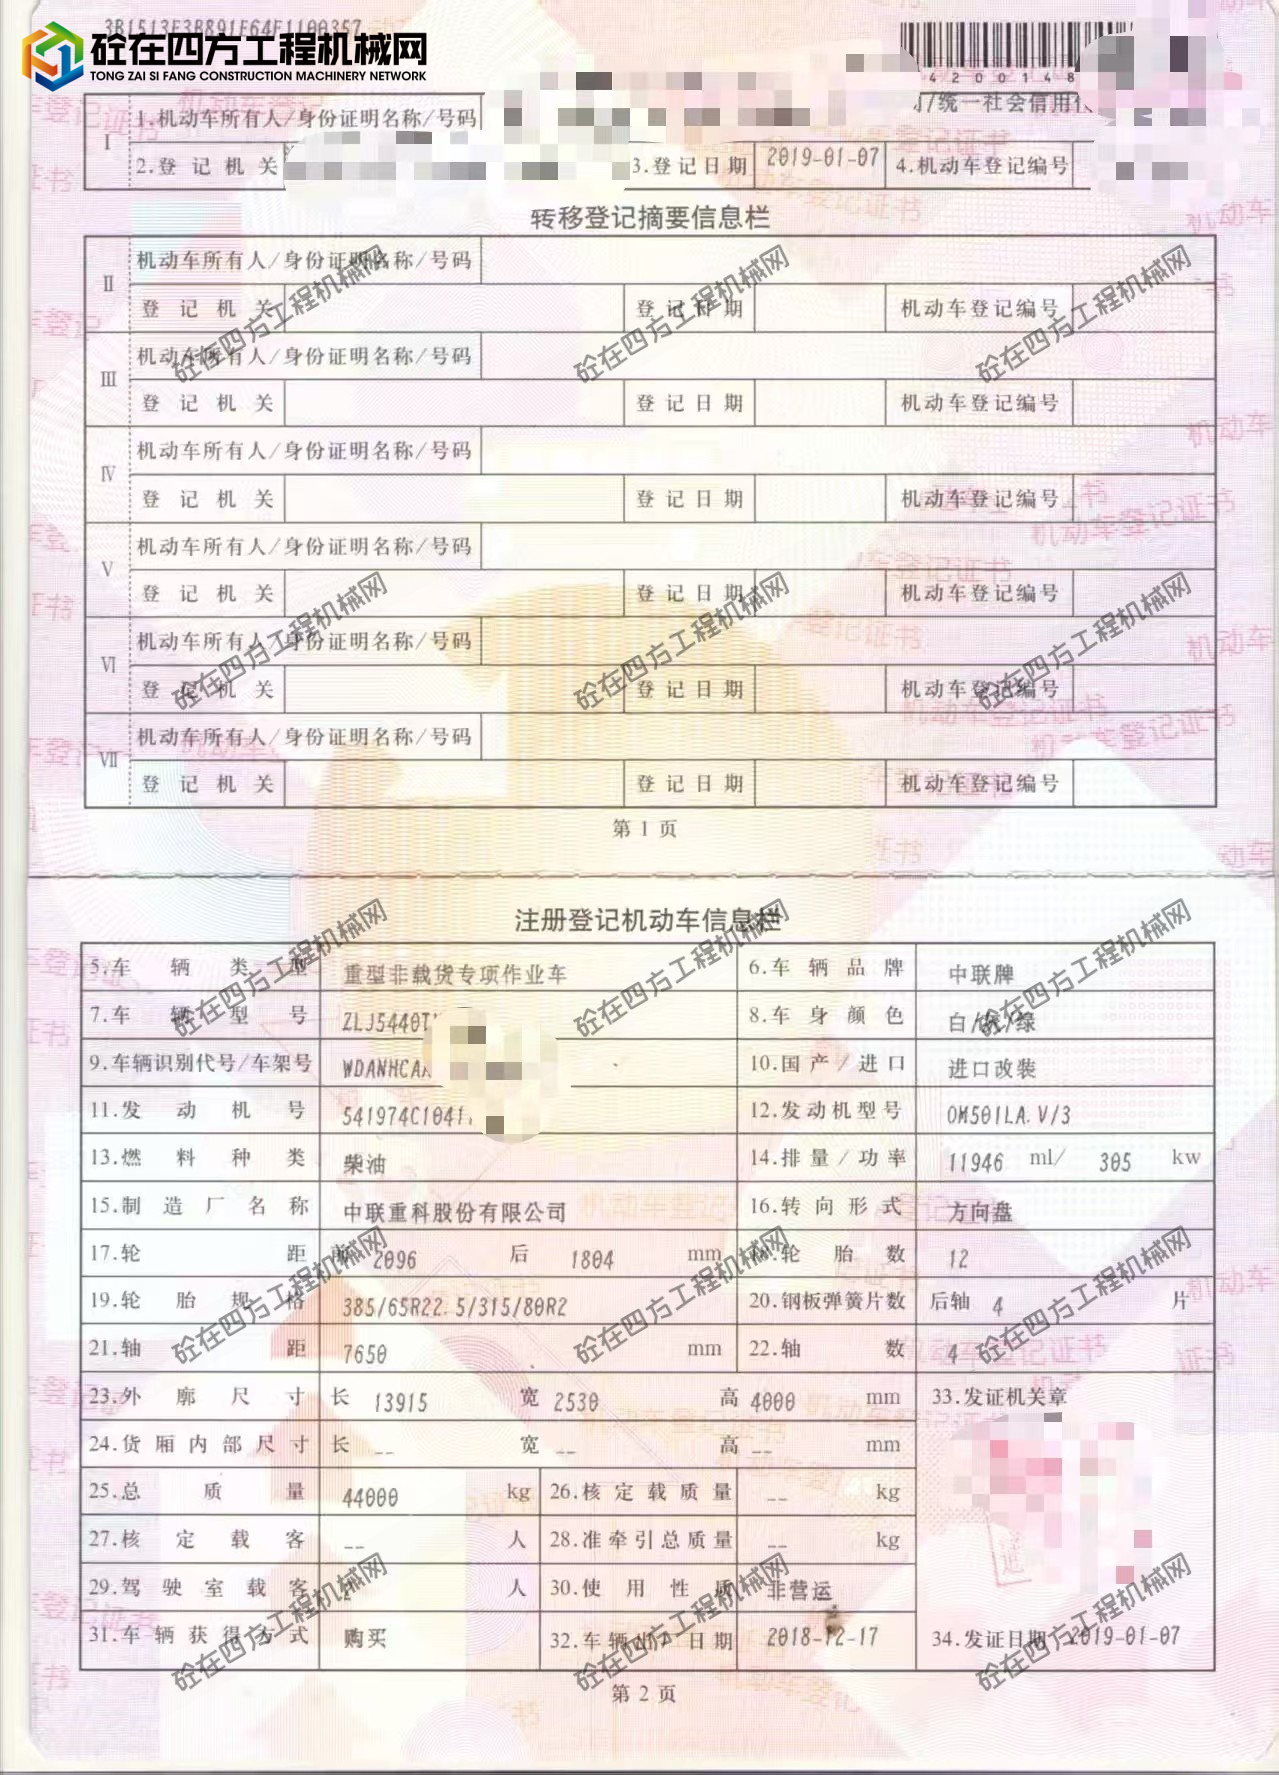 3B1513E3B891E64F1100357
砼在四方工程机械网
TONG ZAI SI FANG CONSTRUCTION MACHINERY NETWORK
4200148
I 1.机动车所有人/身份证明名称/号码 /统一社会信用代
2.登记机关 3.登记日期 2019-01-07 4.机动车登记编号
转移登记摘要信息栏
II 机动车所有人/身份证明名称/号码
登记机关 登记日期 机动车登记编号
III 机动车所有人/身份证明名称/号码
登记机关 登记日期 机动车登记编号
IV 机动车所有人/身份证明名称/号码
登记机关 登记日期 机动车登记编号
V 机动车所有人/身份证明名称/号码
登记机关 登记日期 机动车登记编号
VI 机动车所有人/身份证明名称/号码
登记机关 登记日期 机动车登记编号
VII 机动车所有人/身份证明名称/号码
登记机关 登记日期 机动车登记编号
第 1 页
注册登记机动车信息栏
5.车辆类型 重型非载货专项作业车 6.车辆品牌 中联牌
7.车辆型号 ZLJ5440T 8.车身颜色 白/灰/绿
9.车辆识别代号/车架号 WDANHCAA 10.国产/进口 进口改装
11.发动机号 541974C1041 12.发动机型号 OM501LA.V/3
13.燃料种类 柴油 14.排量/功率 11946 ml/ 305 kw
15.制造厂名称 中联重科股份有限公司 16.转向形式 方向盘
17.轮距 前 2096 后 1804 mm 18.轮胎数 12
19.轮胎规格 385/65R22.5/315/80R2 20.钢板弹簧片数 后轴 4 片
21.轴距 7650 mm 22.轴数 4
23.外廓尺寸 长 13915 宽 2530 高 4000 mm 33.发证机关章
24.货厢内部尺寸 长 -- 宽 -- 高 -- mm
25.总质量 44000 kg 26.核定载质量 -- kg
27.核定载客 -- 人 28.准牵引总质量 -- kg
29.驾驶室载客 人 30.使用性质 非营运
31.车辆获得方式 购买 32.车辆出厂日期 2018-12-17 34.发证日期 2019-01-07
第 2 页